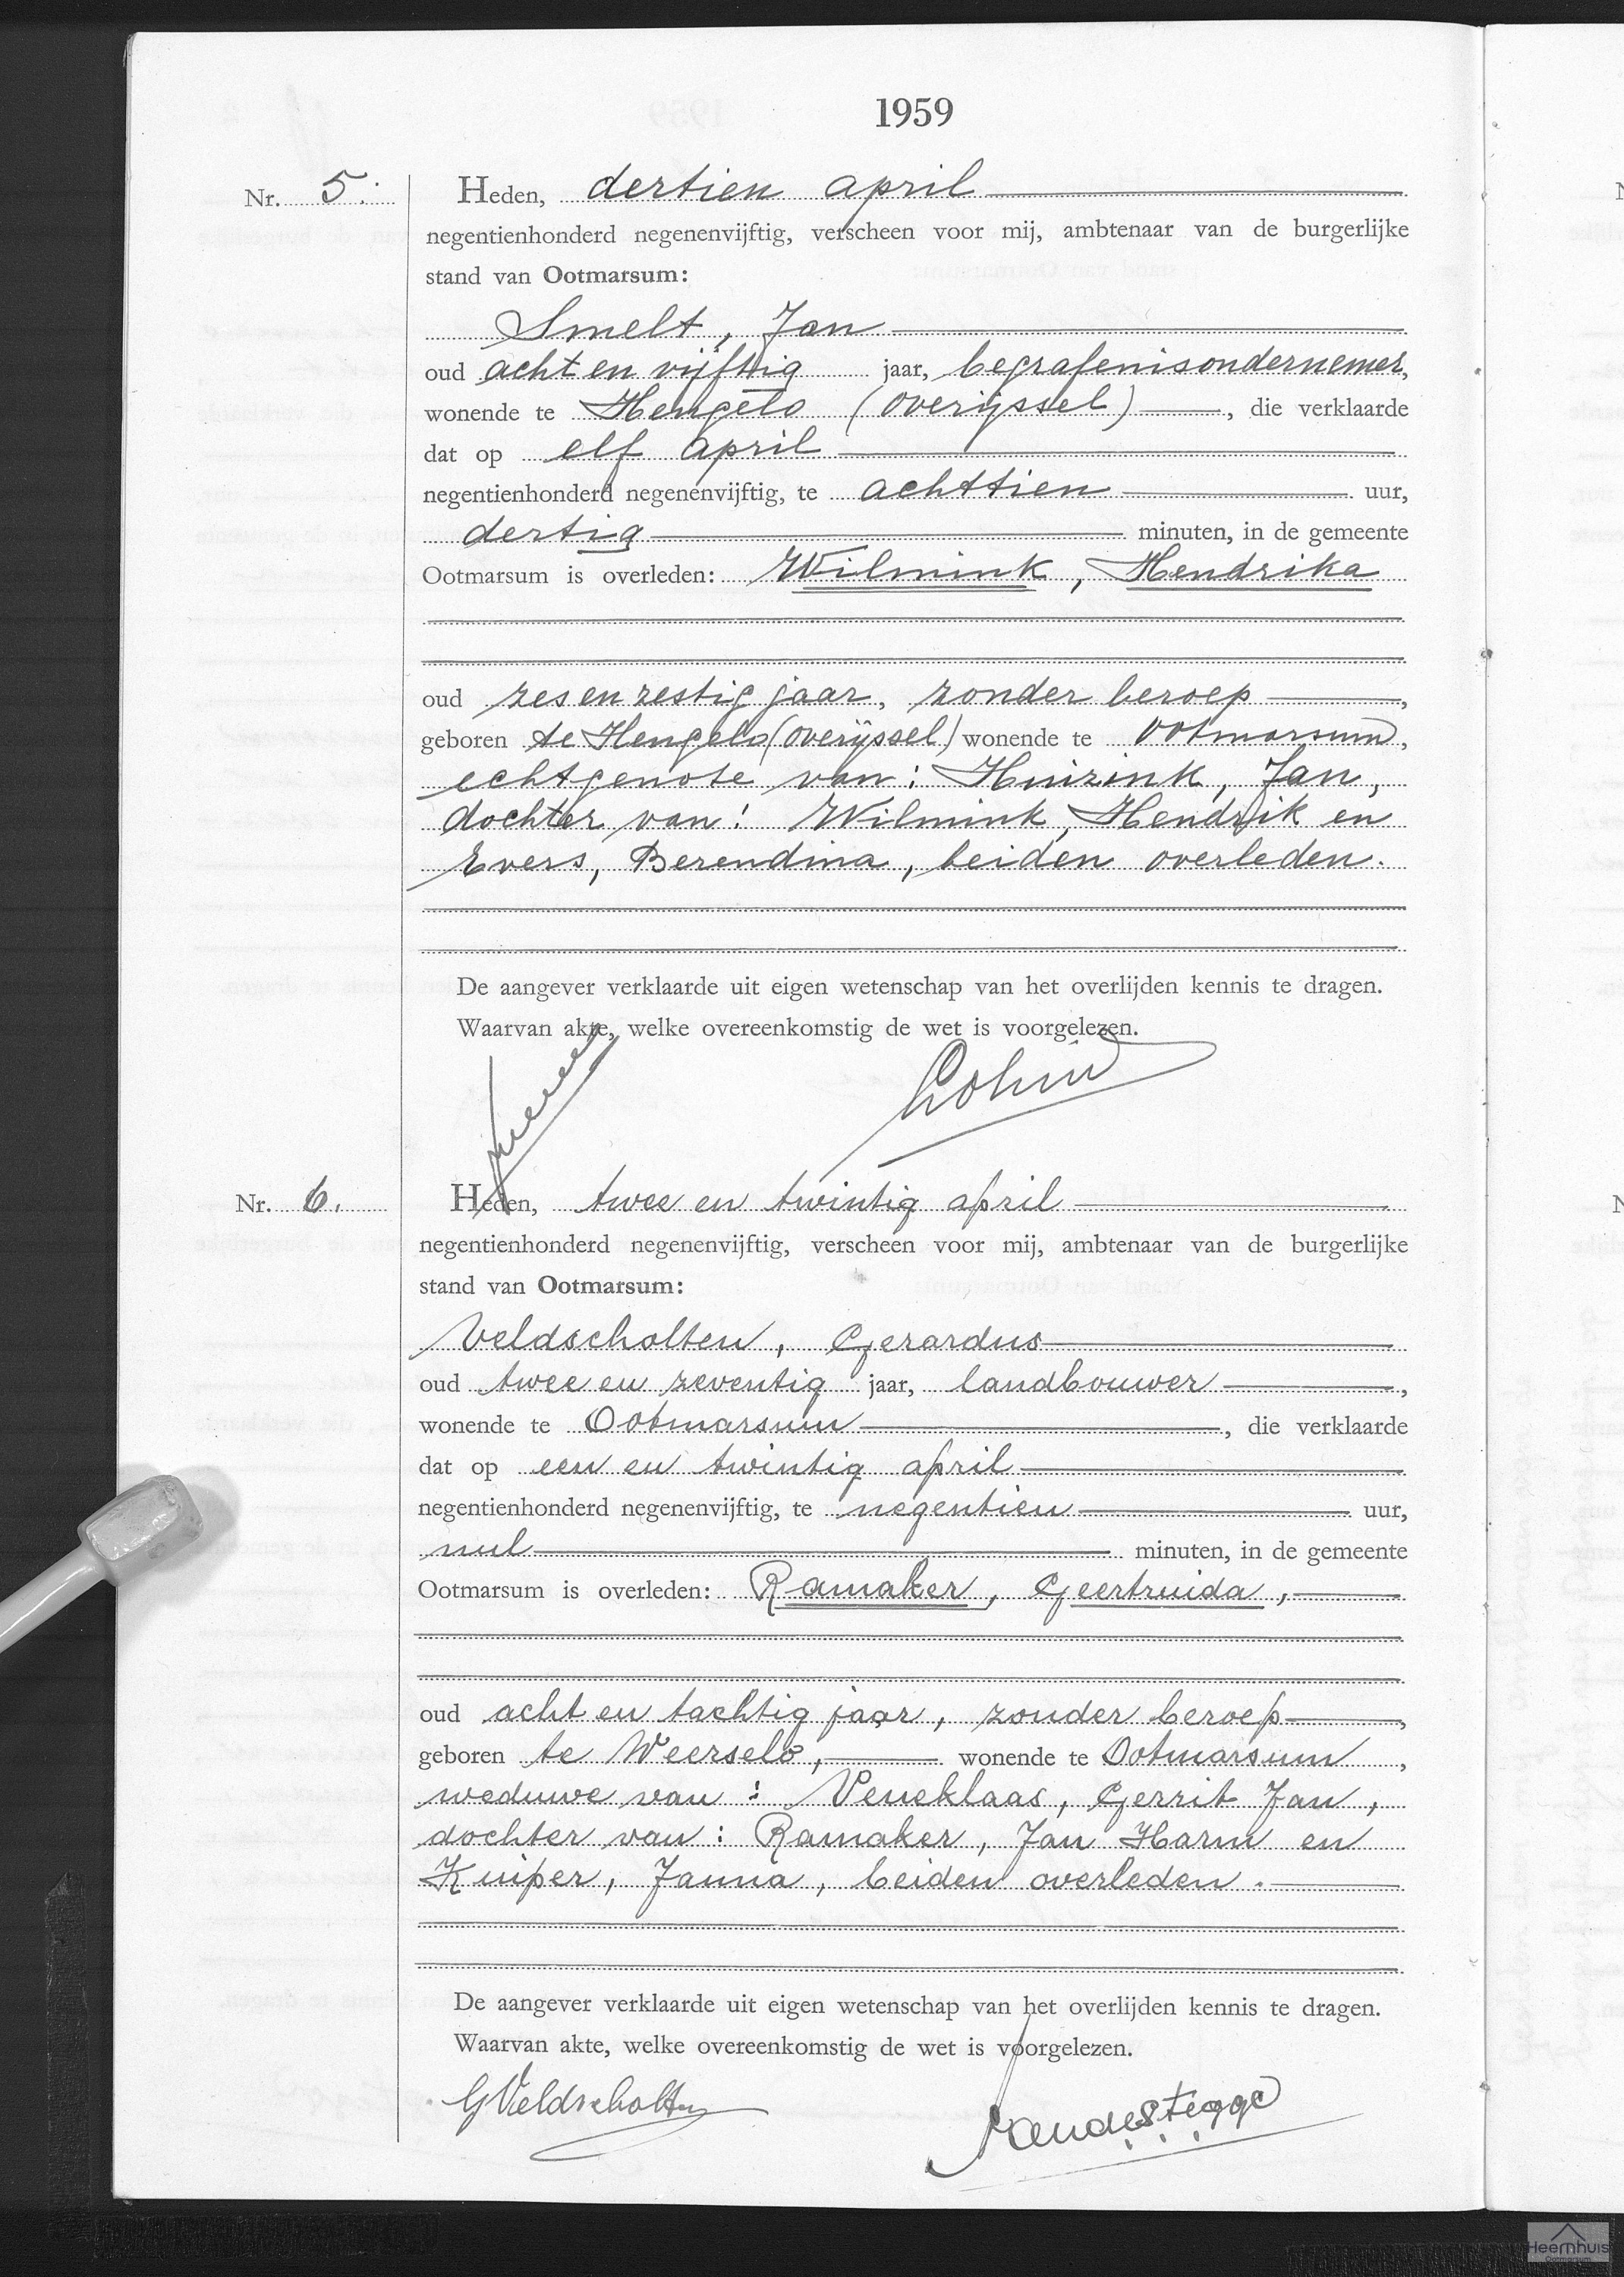 1959
Nr. 5. Heden, dertien april
negentienhonderd negenenvijftig, verscheen voor mij, ambtenaar van de burgerlijke
stand van Ootmarsum:
Smelt, Jan
oud acht en vijftig jaar, begrafenisondernemer,
wonende te Hengelo (Overijssel) , die verklaarde
dat op elf april
negentienhonderd negenenvijftig, te achttien uur,
dertig minuten, in de gemeente
Ootmarsum is overleden: Wilmink, Hendrika
oud zes en zestig jaar, zonder beroep ,
geboren te Hengelo (Overijssel) wonende te Ootmarsum,
echtgenote van: Huizink, Jan,
dochter van: Wilmink, Hendrik en
Evers, Berendina, beiden overleden.
De aangever verklaarde uit eigen wetenschap van het overlijden kennis te dragen.
Waarvan akte, welke overeenkomstig de wet is voorgelezen.
Nr. 6. Heden, twee en twintig april
negentienhonderd negenenvijftig, verscheen voor mij, ambtenaar van de burgerlijke
stand van Ootmarsum:
Veldscholten, Gerardus
oud twee en zeventig jaar, landbouwer ,
wonende te Ootmarsum , die verklaarde
dat op een en twintig april
negentienhonderd negenenvijftig, te negentien uur,
nul minuten, in de gemeente
Ootmarsum is overleden: Ramaker, Geertruida,
oud acht en tachtig jaar, zonder beroep ,
geboren te Weerselo, wonende te Ootmarsum ,
weduwe van: Veneklaas, Gerrit Jan,
dochter van: Ramaker, Jan Harm en
Kuiper, Janna, beiden overleden.
De aangever verklaarde uit eigen wetenschap van het overlijden kennis te dragen.
Waarvan akte, welke overeenkomstig de wet is voorgelezen.
GVeldscholten
Heemhuis
Ootmarsum